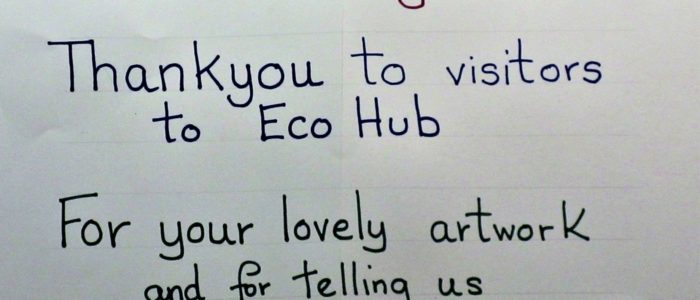 Thankyou to visitors
to Eco Hub
For your lovely artwork
and for telling us